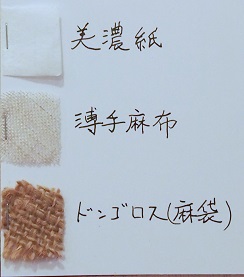 美濃紙
薄手麻布
ドンゴロス(麻袋)